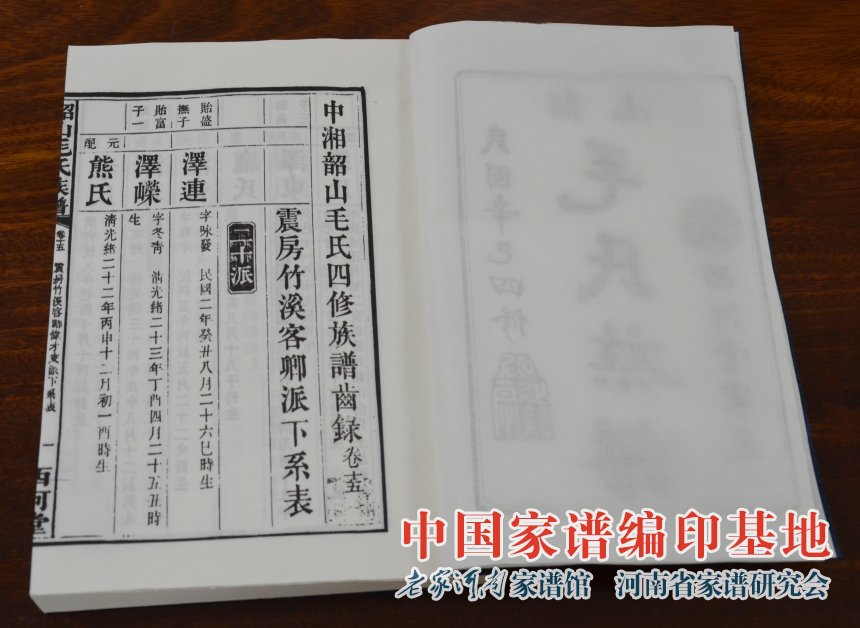 中湘韶山毛氏四修族譜齒錄卷十五
震房竹溪客卿派下系表
二十派
貽盛
撫子
澤連
字咏發 民國二年癸丑八月二十六巳時生
貽富
子一
澤嶸
字冬青 清光緒二十三年丁酉四月二十五丑時
生
元
配
熊氏
清光緒二十二年丙申十二月初一酉時生
韶山毛氏族譜
卷十五
震房竹溪客卿
派下系表
一
西河堂
毛氏
民國辛巳四修
中国家谱编印基地
老家河南家谱馆 河南省家谱研究会